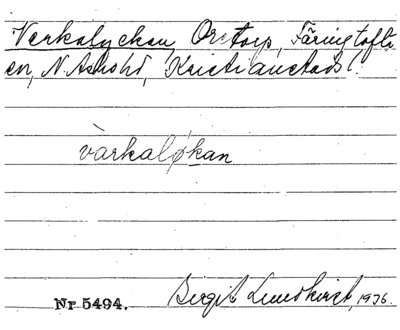 Verkalyckan, Oretorp, Färingtofta
sn, N. Åsbohd, Kristianstads l.
värkaløkan
Nr 5494. Birgit Lundkvist, 1936.